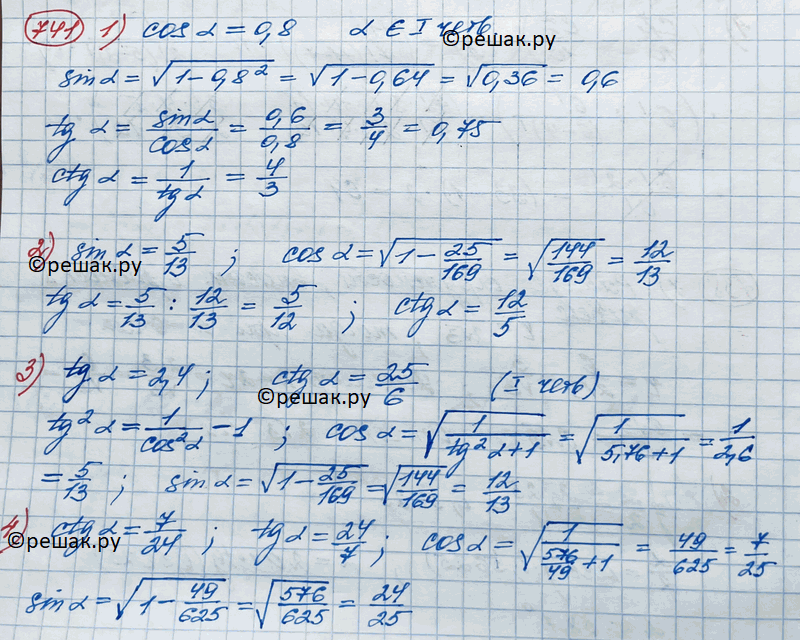 741 1) cos α = 0,8 α ∈ I четв
©решак.ру
sin α = √(1 − 0,8²) = √(1 − 0,64) = √(0,36) = 0,6
tg α = sin α/cos α = 0,6/0,8 = 3/4 = 0,75
ctg α = 1/tg α = 4/3
2) sin α = 5/13 ; cos α = √(1 − 25/169) = √(144/169) = 12/13
©решак.ру
tg α = 5/13 : 12/13 = 5/12 ; ctg α = 12/5
3) tg α = 2,4 ; ctg α = 25/6 (I четв)
©решак.ру
tg² α = 1/cos² α − 1 ; cos α = √(1/(tg² α + 1)) = √(1/(5,76 + 1)) = 1/2,6
= 5/13 ; sin α = √(1 − 25/169) = √(144/169) = 12/13
4) ctg α = 7/24 ; tg α = 24/7 ; cos α = √(1/(576/49 + 1)) = 49/625 = 7/25
©решак.ру
sin α = √(1 − 49/625) = √(576/625) = 24/25